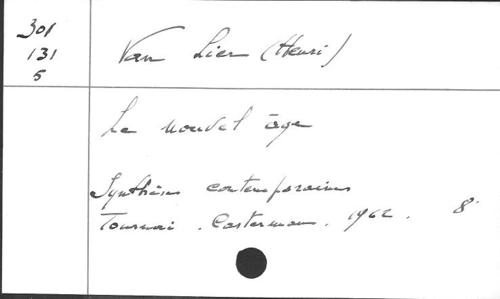 301
131
5
Van Lier (Henri)
Le nouvel âge
Synthèses contemporaines
Tournai. Casterman. 1962. 8°